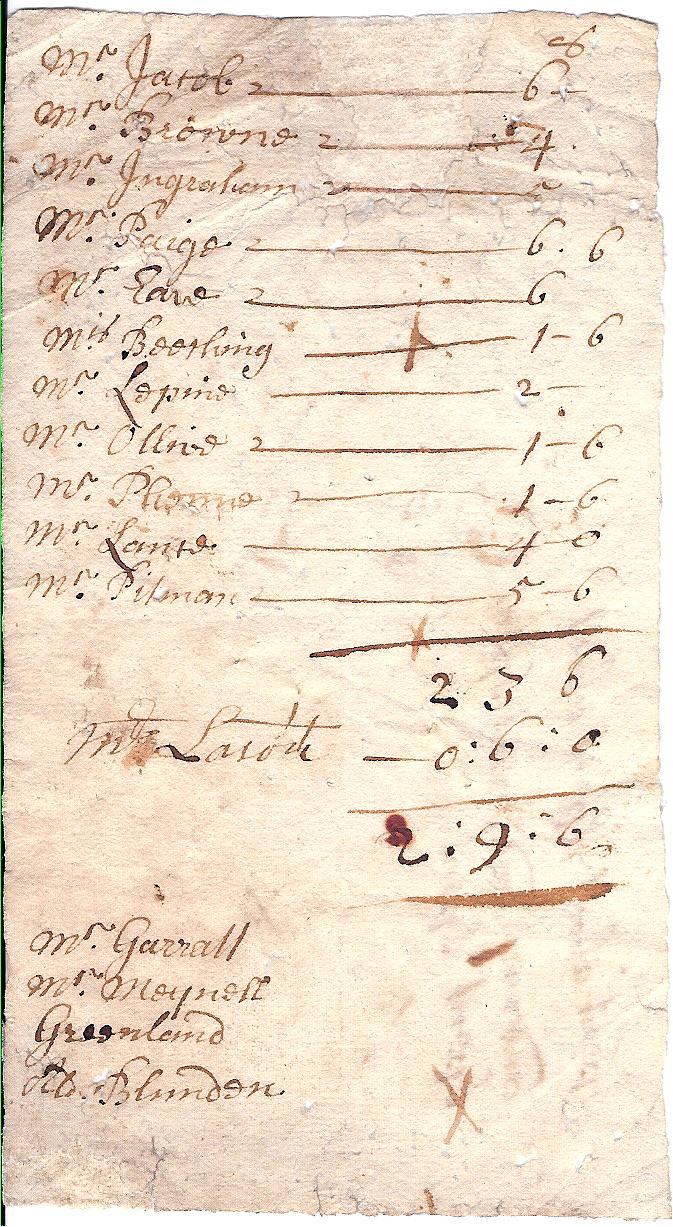 s
Mr. Jacob 6 –
Mr. Browne 4
Mr. Ingraham 5
Mr. Paige 6 . 6
Mr. Eave 6
Mis Beerling 1 – 6
Mr. Lepine 2 –
Mr. Ollive 1 – 6
Mr. 1 – 6
Mr. Lante 4 – 0
Mr. Pitman 5 – 6
2 3 6
0 : 6 : 0
2 : 9 : 6
Mr. Garrall
Mr. Meynell
Greenland
Blunden